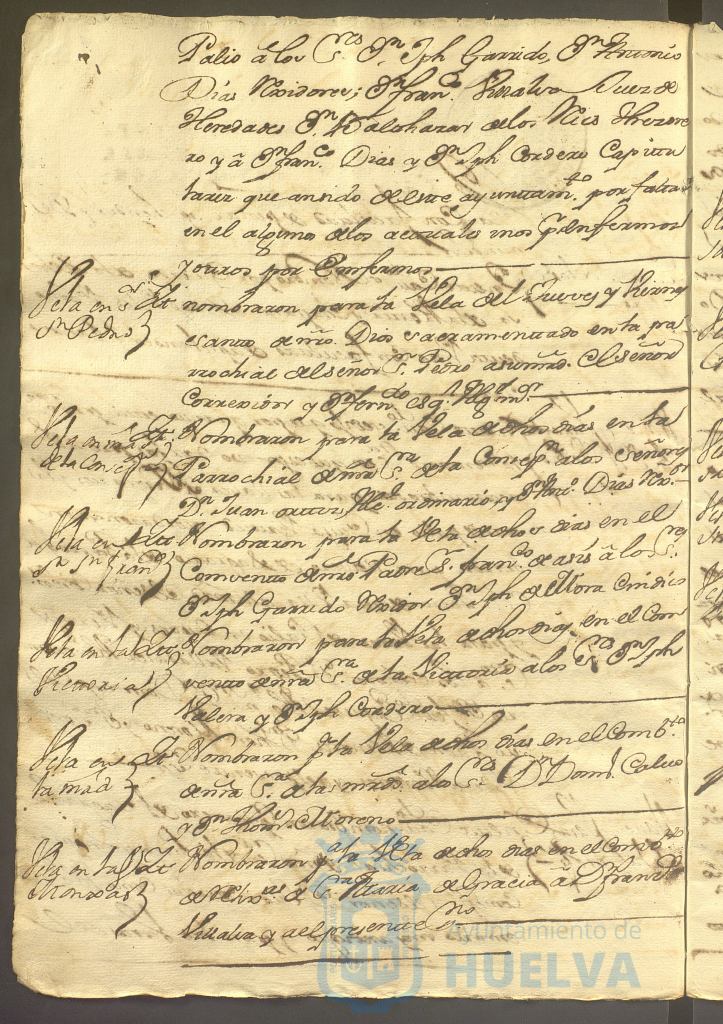 Palio â los S.res D.n Jph Garrido, D.n Antonio
Días Rexidores; D.n Fran.co Villalva Juez de
Heredades D.n Balthazar de los Rios Thezore
ro y â D.n Fran.co Dias y D.n Jph Cordero Capitu
lares que an sido de este ayuntam.to por falta
en el algunos de los actuales unos p.r enfermos
y otros por Enfermos
Vela en S.r
S.n Pedro
It nombraron para la Vela del Jueves y Viernes
santo de nro. Dios sacramentado en la pa
rrochial del señor S.n Pedro a su md. el señor
Correxidor y D.n Fern.do
Vela en nra S.ra
de la Conсep.on
It Nombraron para la Vela de dhos días en la
Parrochial de nra S.ra de la Concep.on a los señores
D.n Juan Alc.e ordinario y D.n Ant.o Dias Rex.or
Vela en
S.n Fran.co
It Nombraron para la Vela de dhos dias en el
Convento de nro Padre S.n Fran.co de asis â los S.res
D.n Jph Garrido Rexidor D.n Jph de Mora Sindico
Vela en la
Victoria
It Nombraron para la Vela de dhos dias en el Con
vento de nra S.ra de la Victoria a los S.res D.n Jph
Valera y D.n Jph Cordero
Vela en
la md
It Nombraron p.a la Vela de dhos dias en el Comb.to
de nra S.ra de la md. a los S.res D.n Dom.o Calvo
y D.n Thom.s Moreno
Vela en las
Monxas
It Nombraron p.a la Vela de dhos dias en el Comb.to
de Relix.as de S.ta Maria de Gracia â D.n Fran.co
Villalva y a el presente S.no
Ayuntamiento de
HUELVA